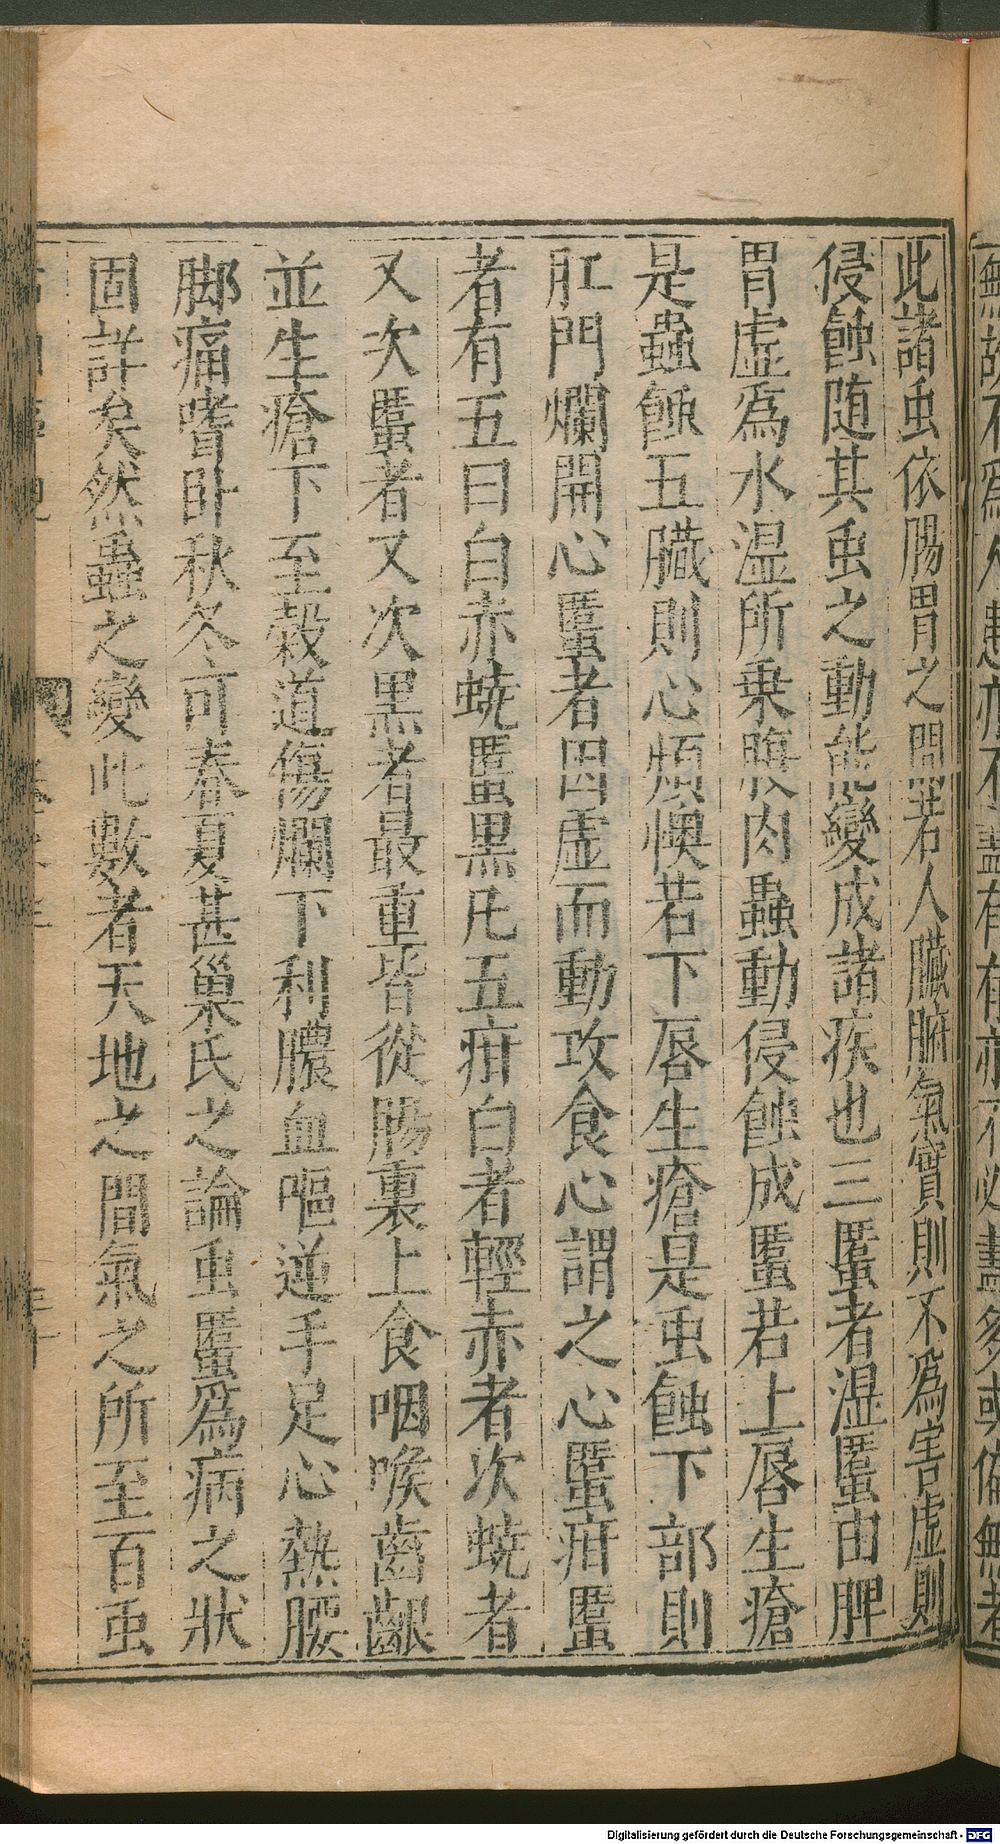 此諸虫依腸胃之間若人臟腑氣實則不為害虛則
侵蝕随其虫之動能變成諸疾也三䘌者湿䘌由脾
胃虛為水湿所乗腹内蟲動侵蝕成䘌若上唇生瘡
是蟲蝕五臟則心煩懊若下唇生瘡是虫蝕下部則
肛門爛開心䘌者因虛而動攻食心謂之心䘌疳䘌
者有五曰白赤蟯䘌黒凡五疳白者輕赤者次蟯者
又次䘌者又次黒者最重皆從腸裏上食咽喉齒齦
並生瘡下至穀道傷爛下利膿血嘔逆手足心熱腰
脚痛嗜卧秋冬可春夏甚巢氏之論虫䘌為病之狀
固詳矣然蟲之變此數者天地之間氣之所至百虫
Digitalisierung gefördert durch die Deutsche Forschungsgemeinschaft - DFG